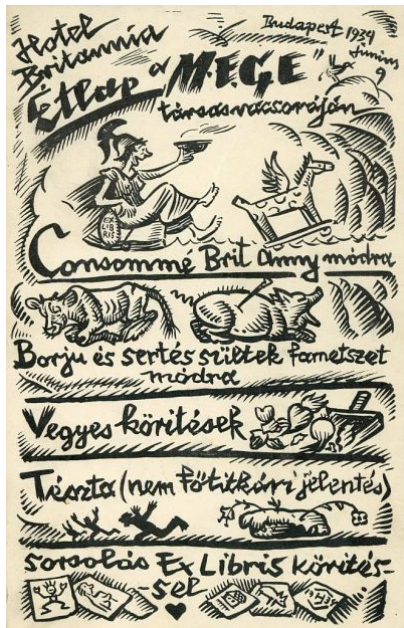 Hotel
Britannia
Budapest 1934
Junius
9
Étlap a "M.E.G.E"
társasvacsoráján
EX
LIB
RIS
Consommé Brit Anny módra
Borju és sertés sültek fametszet
módra
Vegyes körítések
Tészta (nem főtitkári jelentés)
Sorsolás Ex Libris körítés-
-sel